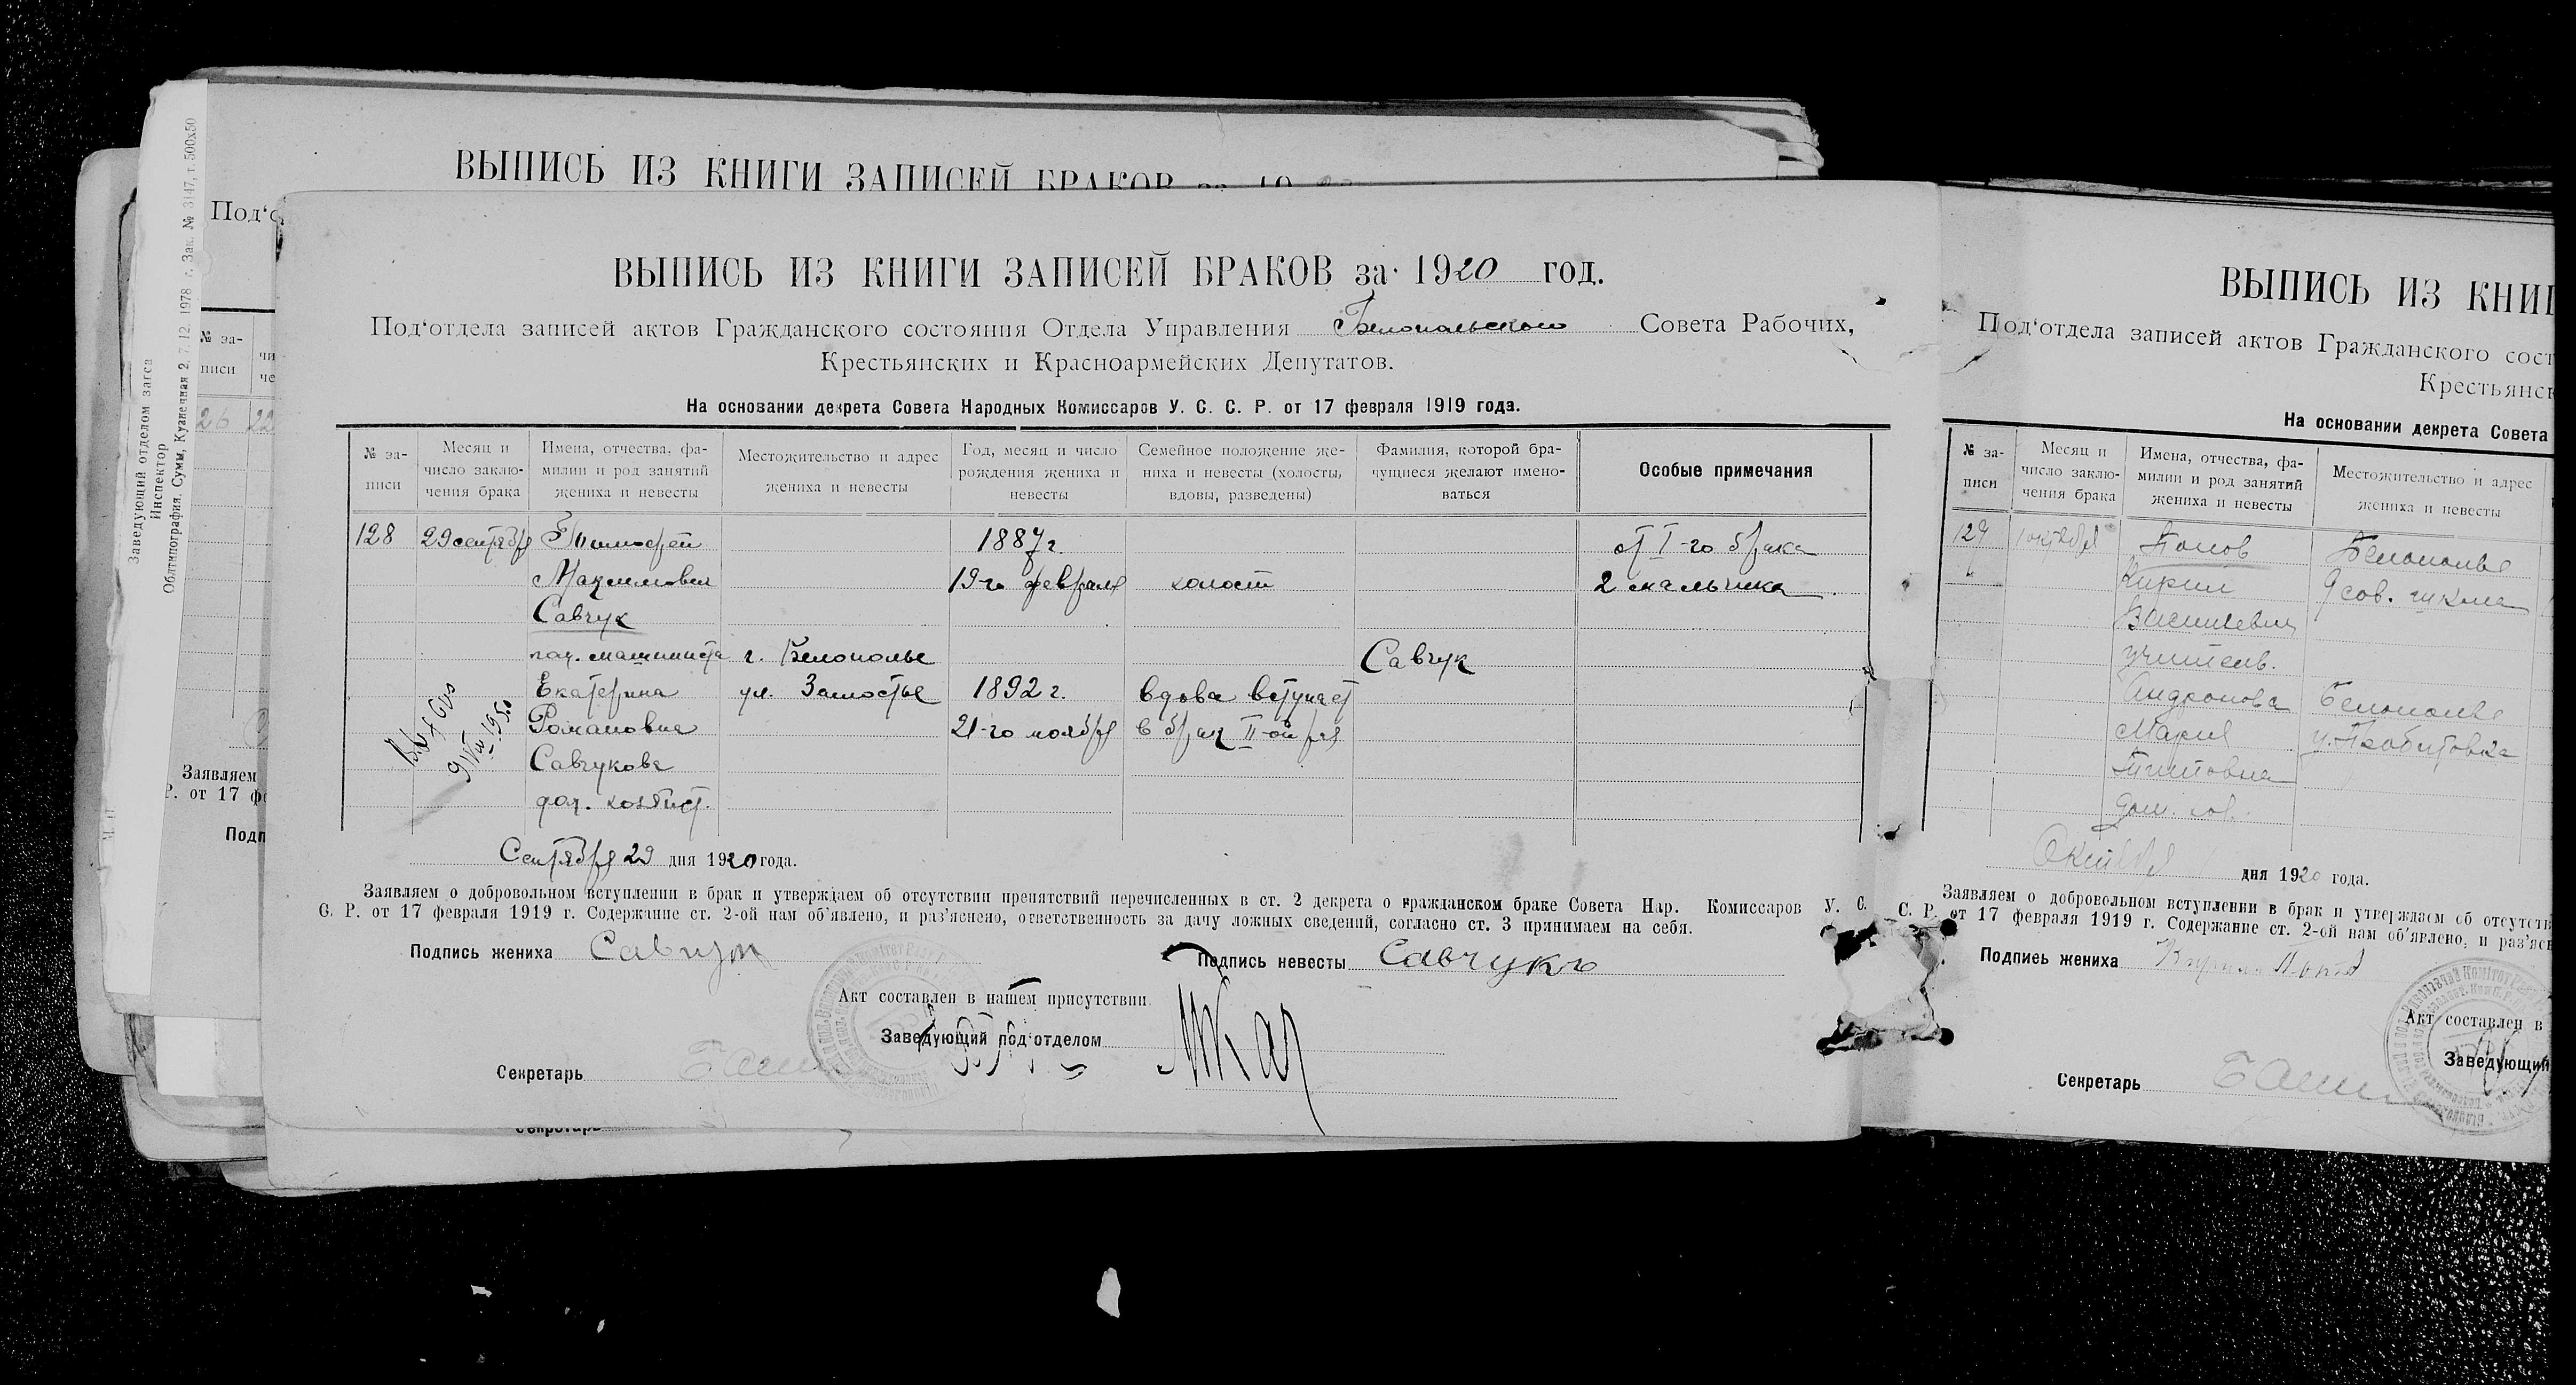 ВЫПИСЬ ИЗ КНИГИ ЗАПИСЕЙ БРАКОВ за 19
Под‘
№ за-
писи
26 22
Заявляем
Р. от 17
Подп
Заведующий отделом загса
Инспектор
Облтипография. Сумы, Кузнечная 2, 7.12. 1978 г. Зак. № 3147, т. 500х50
ВЫПИСЬ ИЗ КНИГИ ЗАПИСЕЙ БРАКОВ за 1920 год.
Под‘отдела записей актов Гражданского состояния Отдела Управления Белопольского Совета Рабочих,
Крестьянских и Красноармейских Депутатов.
На основании декрета Совета Народных Комиссаров У. С. С. Р. от 17 февраля 1919 года.
№ за-
писи
Месяц и
число заклю-
чения брака
Имена, отчества, фа-
милии и род занятий
жениха и невесты
Местожительство и адрес
жениха и невесты
Год, месяц и число
рождения жениха и
невесты
Семейное положение же-
ниха и невесты (холосты,
вдовы, разведены)
Фамилия, которой бра-
чущиеся желают имено-
ваться
Особые примечания
128 29 сентября Тимофей 1887 г. от I-го брака
Максимович 19-го февраля холост 2 мальчика
Савчук
пом. машиниста г. Белополье Савчук
Екатерина ул. Замостье 1892 г. вдова вступает
Романовна 21-го ноября в брак II-ой раз
Савчукова
9/VIII 1950
Сентября 29 дня 1920 года.
Заявляем о добровольном вступлении в брак и утверждаем об отсутствии препятствий перечисленных в ст. 2 декрета о гражданском браке Совета Нар. Комиссаров У. С.
С. Р. от 17 февраля 1919 г. Содержание ст. 2-ой нам об‘явлено, и раз‘яснено, ответственность за дачу ложных сведений, согласно ст. 3 принимаем на себя.
Подпись жениха Савчук
Подпись невесты Савчукъ
Акт составлен в нашем присутствии
Заведующий под‘отделом
Секретарь
Секретарь
ВЫПИСЬ ИЗ КНИГ
Под‘отдела записей актов Гражданского сост
Крестьянск
На основании декрета Совета
№ за-
писи
Месяц и
число заклю-
чения брака
Имена, отчества, фа-
милии и род занятий
жениха и невесты
Местожительство и адрес
жениха и невесты
129 1 октября Попов Белополье
Кирил 9 сов. школа
Васильевич
учитель.
Андронова Белополье
Мария
Титовна
Октября 1 дня 1920 года.
Заявляем о добровольном вступлении в брак и утверждаем об отсутств
С. Р. от 17 февраля 1919 г. Содержание ст. 2-ой нам об‘явлено, и раз‘ясн
Подпись жениха
Акт составлен в
Заведующий
Секретарь